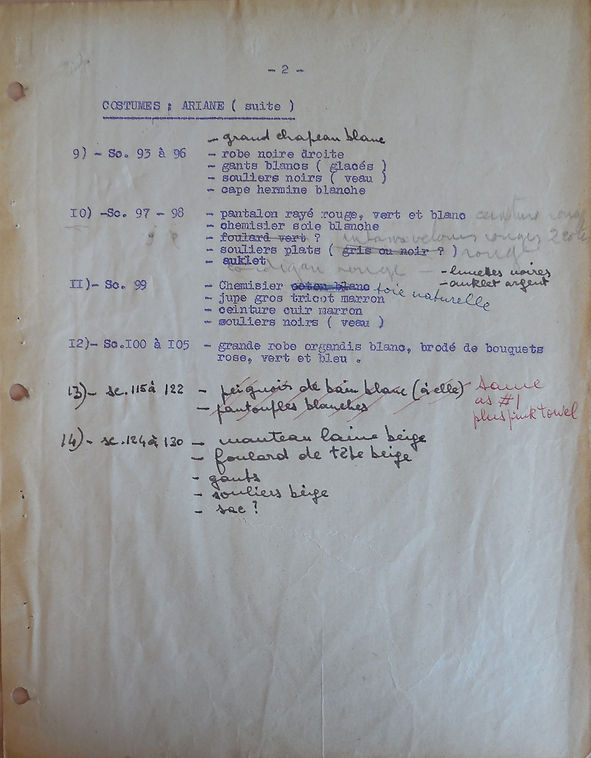 - 2 -
COSTUMES : ARIANE ( suite )
- grand chapeau blanc
9) - Sc. 93 à 96 - robe noire droite
- gants blancs ( glacés )
- souliers noirs ( veau )
- cape hermine blanche
10) -Sc. 97 - 98 - pantalon rayé rouge, vert et blanc ceinture rouge
- chemisier soie blanche
- foulard vert ? velours rouges
- souliers plats ( gris ou noir ? ) rouge
- auklet
cardigan rouge - lunettes noires
- auklet argent
11)- Sc. 99 - Chemisier coton blanc soie naturelle
- jupe gros tricot marron
- ceinture cuir marron
- souliers noirs ( veau )
12)- Sc.100 à 105 - grande robe organdis blanc, brodé de bouquets
rose, vert et bleu .
13)- sc. 115 à 122 - peignoir de bain blanc (à elle) Same
as #1
- pantoufles blanches plus pink towel
14)- sc. 124 à 130 - manteau laine beige
- foulard de tête beige
- gants
- souliers beige
- sac ?